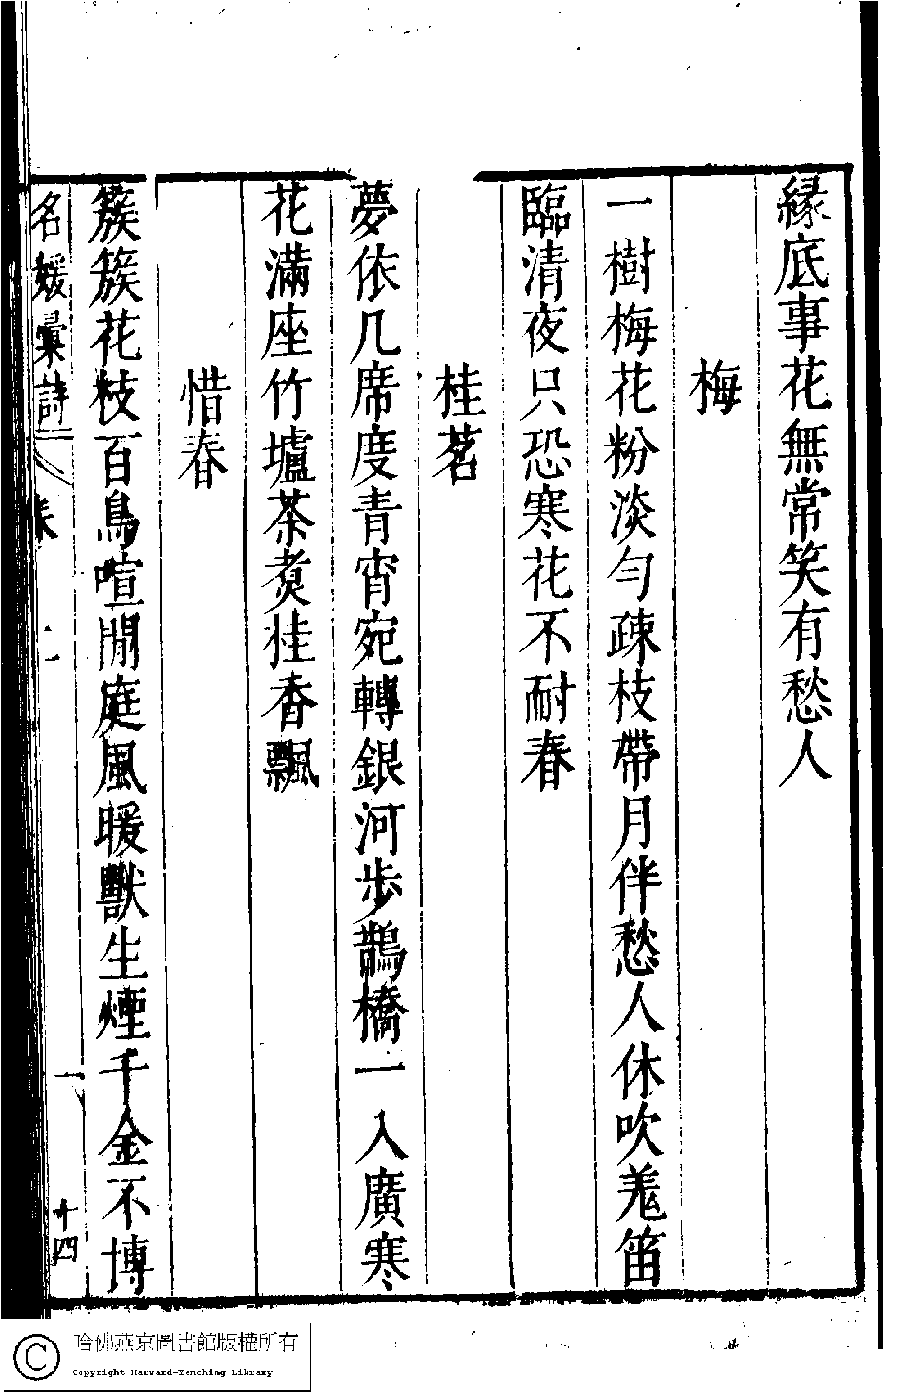 緣底事花無常笑有愁人
梅
一樹梅花粉淡勻疎枝帶月伴愁人休吹羗笛
臨清夜只恐寒花不耐春
桂茗
夢依几席度青宵宛轉銀河步鵲橋一入廣寒
花滿座竹壚茶煑桂香飄
惜春
簇簇花枝百鳥喧閒庭風暖獸生煙千金不博
名媛彙詩
十四
哈佛燕京圖書館版權所有
Copyright Harvard-Yenching Library